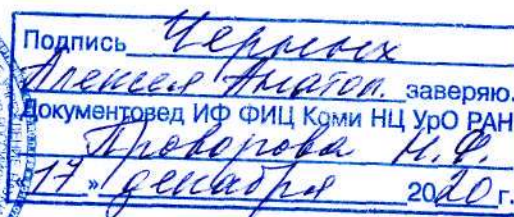 Подпись Черных
Алексея Анатол. заверяю.
Документовед ИФ ФИЦ Коми НЦ УрО РАН
Проворова Н.Ф.
17 » декабря 2020 г.